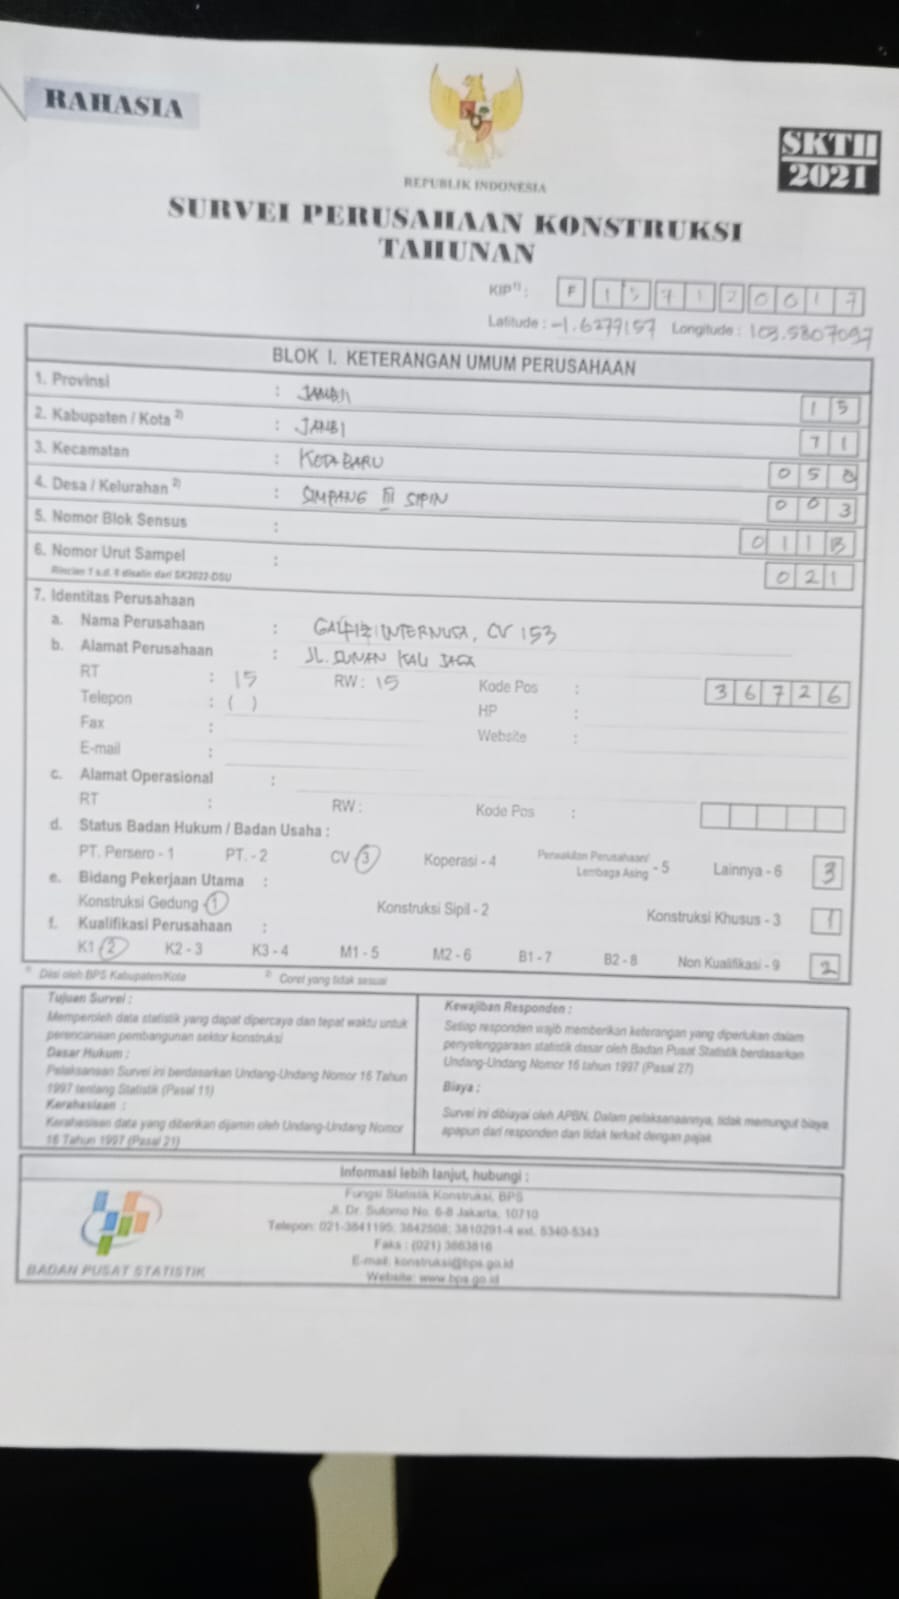 RAHASIA
REPUBLIK INDONESIA
SKTH
2021
SURVEI PERUSAHAAN KONSTRUKSI
TAHUNAN
KIP1) : F 1 5 7 1 2 0 0 1 7
Latitude : -1.6277157 Longitude : 103.5807097
BLOK I. KETERANGAN UMUM PERUSAHAAN
1. Provinsi : JAMBI 1 5
2. Kabupaten / Kota 2) : JAMBI 7 1
3. Kecamatan : KOTA BARU 0 5 0
4. Desa / Kelurahan 2) : SIMPANG III SIPIN 0 0 3
5. Nomor Blok Sensus : 0 1 1 B
6. Nomor Urut Sampel : 0 2 1
Rincian 1 s.d. 6 disalin dari SK2022-DSU
7. Identitas Perusahaan
a. Nama Perusahaan : INTERNUSA, CV 153
b. Alamat Perusahaan : JL. SUNAN KALI JAGA
RT : 15 RW : 15 Kode Pos : 3 6 7 2 6
Telepon : ( ) HP :
Fax : Website :
E-mail :
c. Alamat Operasional :
RT : RW : Kode Pos :
d. Status Badan Hukum / Badan Usaha :
PT. Persero - 1 PT. - 2 CV 3 Koperasi - 4 Perwakilan Perusahaan/ Lembaga Asing - 5 Lainnya - 6 3
e. Bidang Pekerjaan Utama :
Konstruksi Gedung - 1 Konstruksi Sipil - 2 Konstruksi Khusus - 3 1
f. Kualifikasi Perusahaan :
K1 2 K2 - 3 K3 - 4 M1 - 5 M2 - 6 B1 - 7 B2 - 8 Non Kualifikasi - 9 2
1) Diisi oleh BPS Kabupaten/Kota 2) Coret yang tidak sesuai
Tujuan Survei :
Memperoleh data statistik yang dapat dipercaya dan tepat waktu untuk
perencanaan pembangunan sektor konstruksi
Dasar Hukum :
Pelaksanaan Survei ini berdasarkan Undang-Undang Nomor 16 Tahun
1997 tentang Statistik (Pasal 11)
Kerahasiaan :
Kerahasiaan data yang diberikan dijamin oleh Undang-Undang Nomor
16 Tahun 1997 (Pasal 21)
Kewajiban Responden :
Setiap responden wajib memberikan keterangan yang diperlukan dalam
penyelenggaraan statistik dasar oleh Badan Pusat Statistik berdasarkan
Undang-Undang Nomor 16 tahun 1997 (Pasal 27)
Biaya :
Survei ini dibiayai oleh APBN. Dalam pelaksanaannya, tidak memungut biaya
apapun dari responden dan tidak terkait dengan pajak
Informasi lebih lanjut, hubungi :
Fungsi Statistik Konstruksi, BPS
Jl. Dr. Sutomo No. 6-8 Jakarta, 10710
Telepon: 021-3841195; 3842508; 3810291-4 ext. 5340-5343
Faks : (021) 3863816
E-mail: konstruksi@bps.go.id
Website: www.bps.go.id
BADAN PUSAT STATISTIK